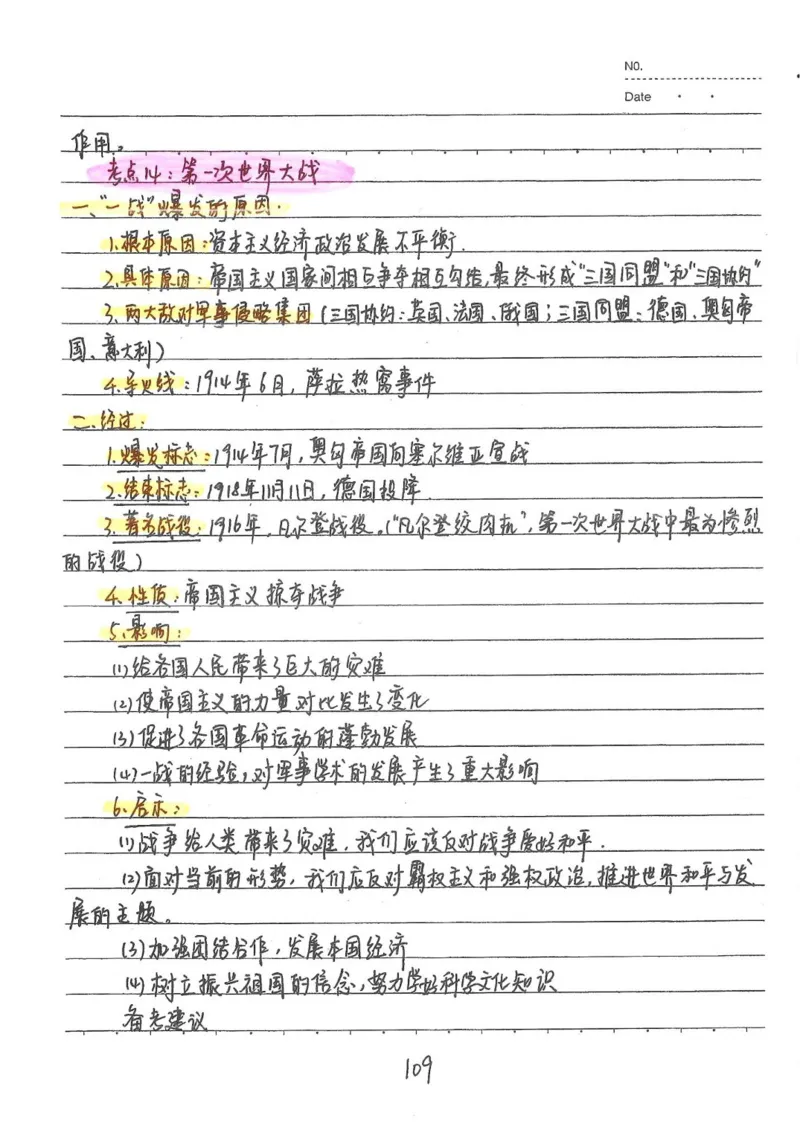 NO.
Date
作用。
考点14:第一次世界大战
一、“一战”爆发的原因.
1.根本原因:资本主义经济政治发展不平衡.
2.具体原因:帝国主义国家间相互争夺相互勾结,最终形成“三国同盟”和“三国协约”
3.两大敌对军事侵略集团(三国协约:英国、法国、俄国;三国同盟:德国、奥匈帝
国、意大利)
4.导火线:1914年6月,萨拉热窝事件
二、经过:
1.爆发标志:1914年7月,奥匈帝国向塞尔维亚宣战
2.结束标志:1918年11月11日,德国投降.
3.著名战役:1916年,凡尔登战役。(“凡尔登绞肉机”,第一次世界大战中最为惨烈
的战役)
4.性质:帝国主义掠夺战争
5.影响:
(1)给各国人民带来了巨大的灾难
(2)使帝国主义的力量对比发生了变化
(3)促进了各国革命运动的蓬勃发展
(4)一战的经验,对军事学术的发展产生了重大影响
6.启示:
(1)战争给人类带来了灾难,我们应该反对战争爱好和平.
(2)面对当前的形势,我们应反对霸权主义和强权政治,推进世界和平与发
展的主题。
(3)加强团结合作,发展本国经济
(4)树立振兴祖国的信念,努力学好科学文化知识
备考建议
109